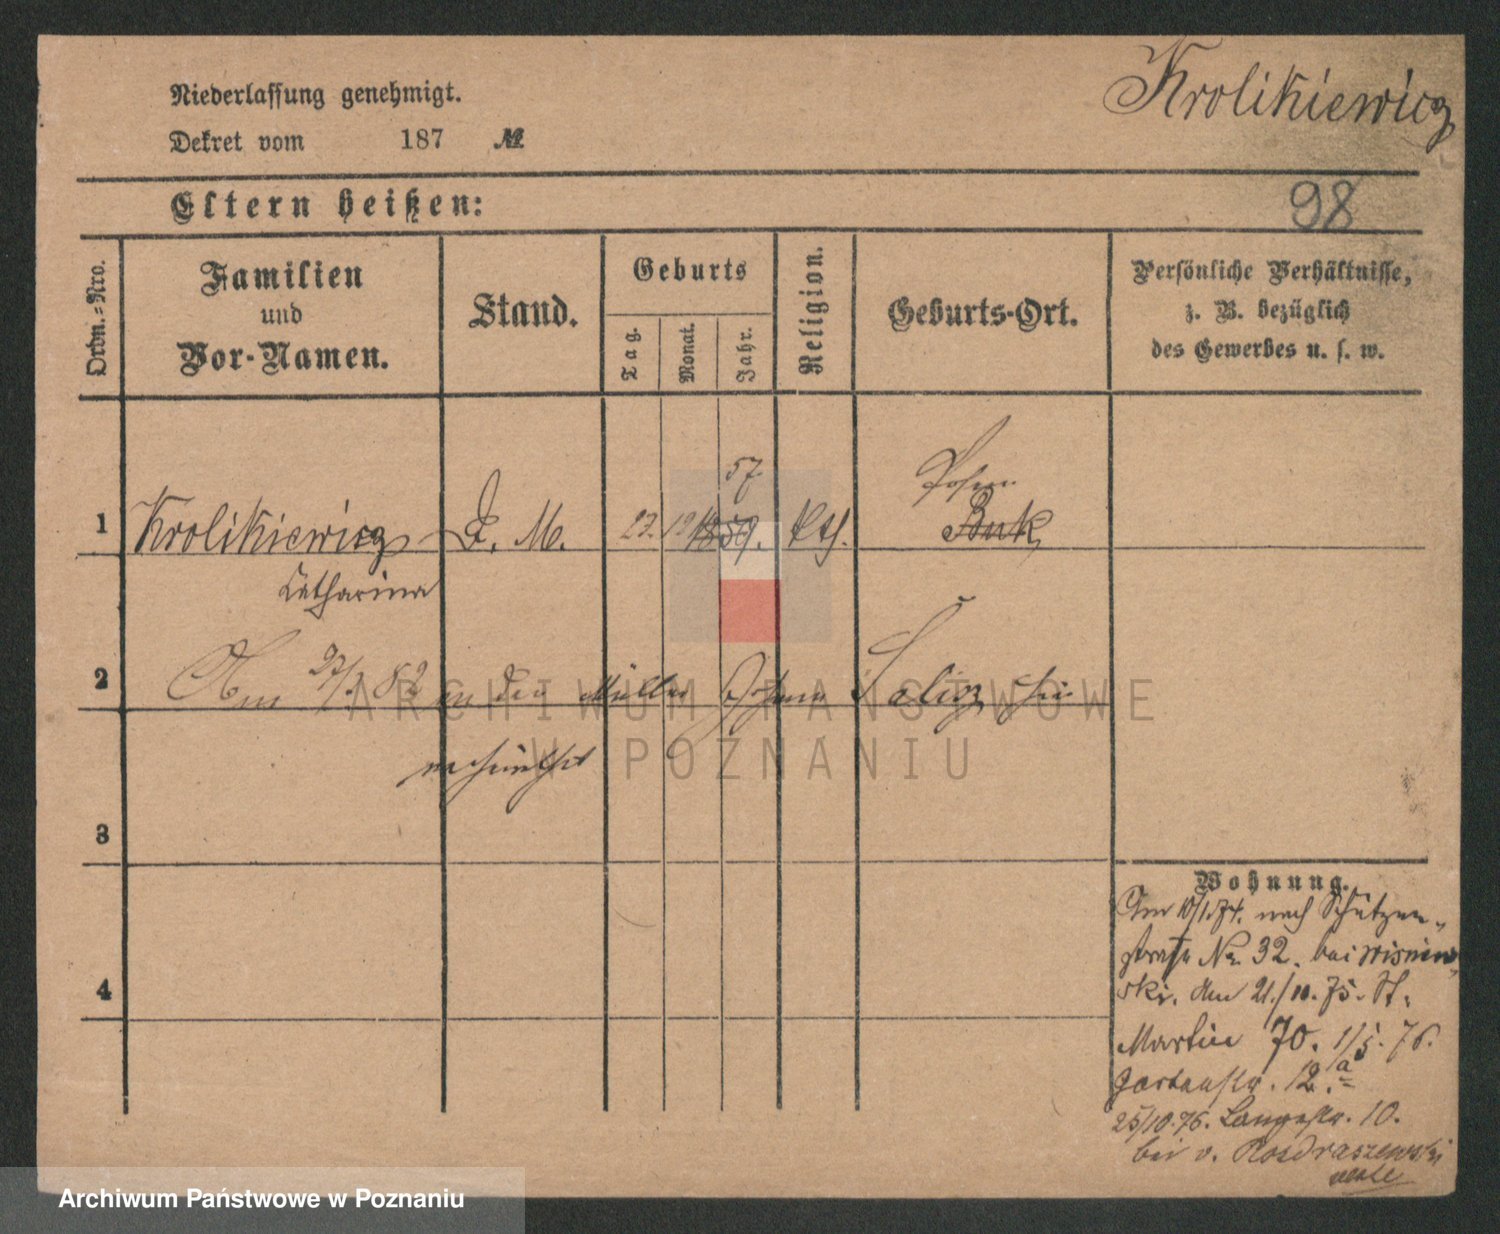 Krolikiewicz
Niederlassung genehmigt.
Dekret vom 187 №
Eltern heißen:
98
Ordn.-Nro.
Familien
und
Vor-Namen.
Stand.
Geburts
Tag.
Monat.
Jahr.
Religion.
Geburts-Ort.
Persönliche Verhältnisse,
z. B. bezüglich
des Gewerbes u. s. w.
57.
Posen
1 Krolikiewicz D. M. 23. 59. Kth. Buk
Catharina
2 Am 27/ 82 an den Müller Johann
verheirathet
3
4
Wohnung.
Am 10/1.74. nach Schützen-
straße No. 32. bei Wisniew-
ski. Am 21./10.75. St.
Martin 70. 1/5.76.
Gartenstr. 12.a
25/10.76. Langestr. 10.
bei v. Rosdraszewski
ARCHIWUM PAŃSTWOWE
W POZNANIU
Archiwum Państwowe w Poznaniu